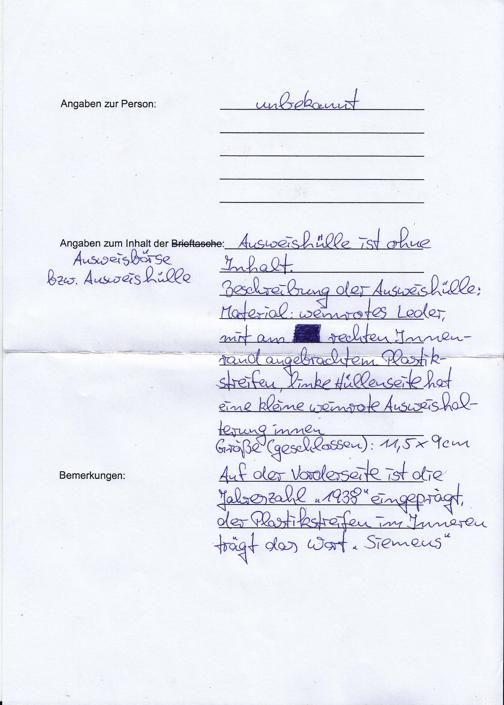 Angaben zur Person: unbekannt
Angaben zum Inhalt der Brieftasche: Ausweishülle ist ohne
Ausweisbörse
bzw. Ausweishülle
Inhalt.
Beschreibung der Ausweishülle:
Material: weinrotes Leder,
mit am rechten Innen-
rand angebrachtem Plastik-
streifen, linke Hüllenseite hat
eine kleine weinrote Ausweishal-
terung innen
Größe (geschlossen): 11,5 x 9cm
Bemerkungen: Auf der Vorderseite ist die
Jahreszahl „1938" eingeprägt,
der Plastikstreifen im Inneren
trägt das Wort „Siemens"